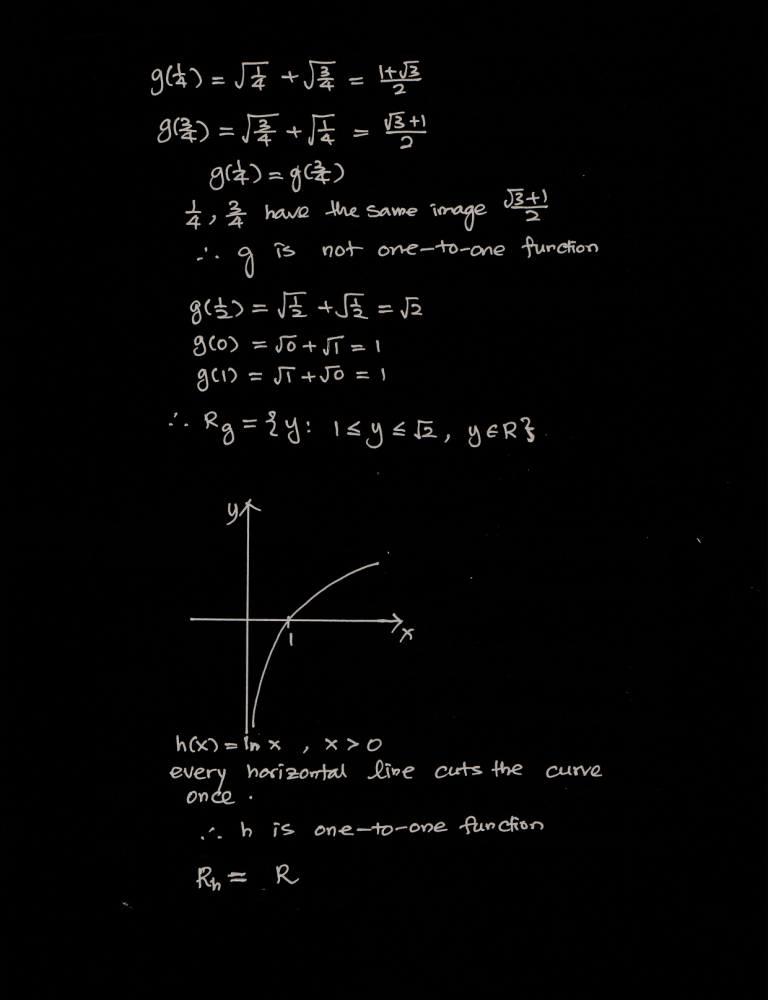 g(1/4) = √1/4 + √3/4 = 1+√3/2
g(3/4) = √3/4 + √1/4 = √3+1/2
g(1/4) = g(3/4)
1/4, 3/4 have the same image √3+1/2
∴ g is not one-to-one function
g(1/2) = √1/2 + √1/2 = √2
g(0) = √0 + √1 = 1
g(1) = √1 + √0 = 1
∴ Rg = {y: 1 ≤ y ≤ √2, y ∈ R}
y
x
1
h(x) = ln x , x > 0
every horizontal line cuts the curve
once .
∴ h is one-to-one function
Rh = R